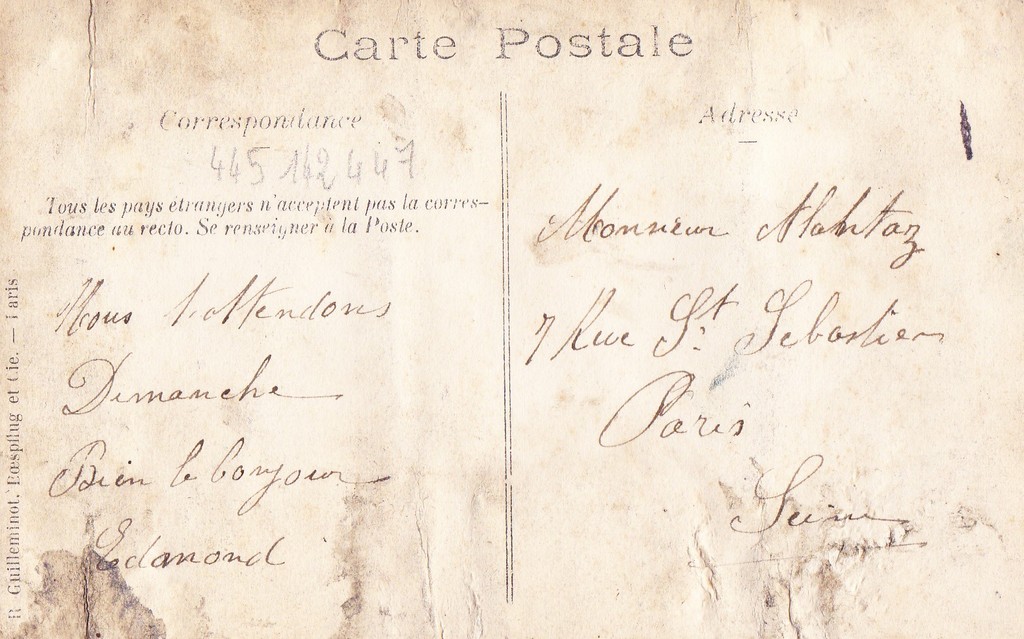 Carte Postale
Correspondance
445 142 447
Tous les pays étrangers n'acceptent pas la corres-
pondance au recto. Se renseigner à la Poste.
Nous t'attendons
Dimanche
Bien le bonjour
Edmond
Adresse
Monsieur
7 Rue St. Sebastien
Paris
Seine
R. Guilleminot, Bœspflug et Cie. — Paris